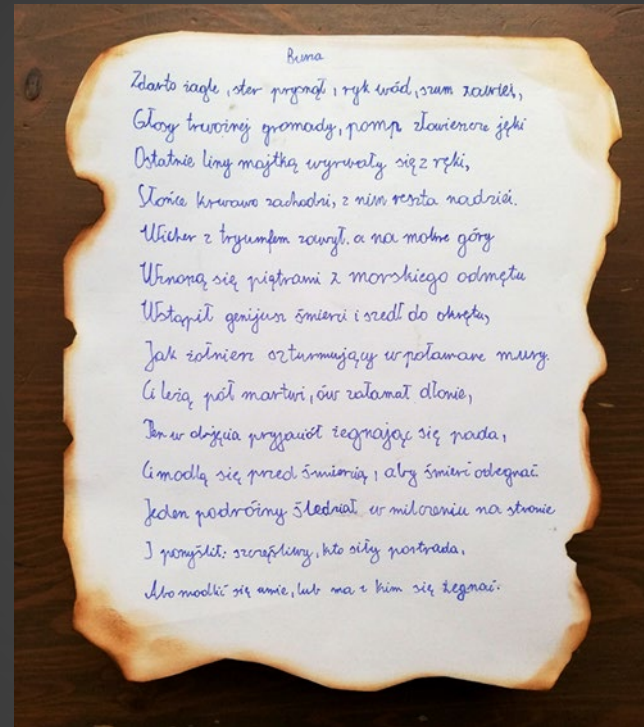 Burza
Zdarto żagle, ster prysnął, ryk wód, szum zawiei,
Głosy trwożnej gromady, pomp złowieszcze jęki
Ostatnie liny majtką wyrwały się z ręki,
Słońce krwawo zachodzi, z nim reszta nadziei.
Wicher z tryumfem zawył, a na mokre góry
Wznoszą się piętrami z morskiego odmętu
Wstąpił genijusz śmierci i szedł do okrętu,
Jak żołnierz szturmujący w połamane mury.
Ci leżą pół martwi, ów załamał dłonie,
Ten w objęcia przyjaciół żegnając się pada,
Ci modlą się przed śmiercią, aby śmierć odegnać.
Jeden podróżny siedział w milczeniu na stronie
I pomyślił: szczęśliwy, kto siły postrada,
Albo modlić się umie, lub ma z kim się żegnać.